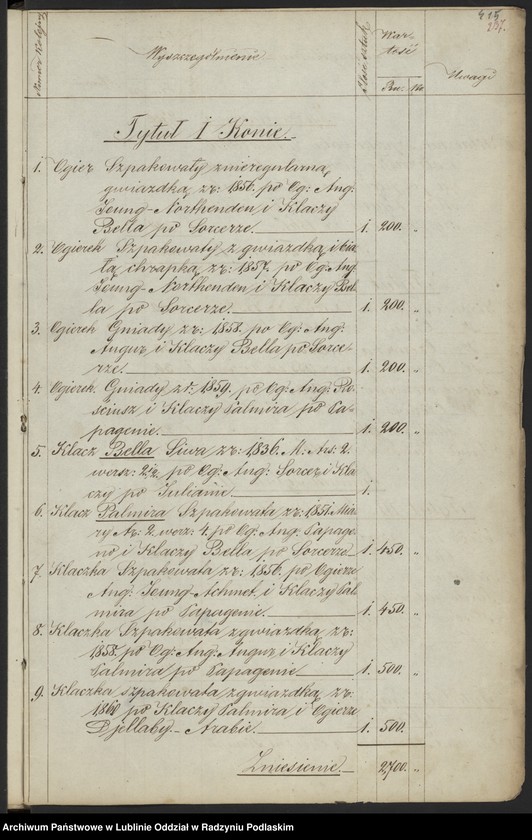 415
207.
Numer Kolejny
Wyszczególnienie
Ilość sztuk
War-
tość
Uwagi
Rs. Ko.
Tytuł 1 Konie.
1. Ogier Szpakowaty z nieregularną
gwiazdką zr: 1856. po Og: Ang:
Young-Northenden i Klaczy
Bella po Sorcerze. 1. 200. "
2. Ogierek Szpakowaty z gwiazdką i bia
łą chrapką zr: 1857. po Og: Ang
Young-Northenden i Klaczy Bel-
la po Sorcerze. 1. 200. "
3. Ogierek Gniady zr: 1858. po Og: Ang:
Angur i Klaczy Bella po Sorce-
rze. 1. 200. "
4. Ogierek Gniady zr: 1859. po Og: Ang: Ro-
sciusz i Klaczy Palmira po Pa-
pagenie. 1. 200. "
5. Klacz Bella Siwa zr: 1836. M: Ars: 2.
wersz: 2½ po Og: Ang: Sorcer i Kla
czy po Julianie 1.
6. Klacz Palmira Szpakowata zr: 1851. Mia
ry Ar: 2. werz: 4. po Og: Ang: Papage-
no i Klaczy Bella po Sorcerze 1. 450. "
7. Klaczka Szpakowata zr: 1856. po Ogierze
Ang: Young-Achmet i Klaczy Pal-
mira po Papagenie. 1. 450. "
8. Klaczka Szpakowata z gwiazdką zr:
1858. po Og: Ang: Angur i Klaczy
Palmira po Papagenie 1. 500. "
9. Klaczka szpakowata z gwiazdką zr:
1860 po Klaczy Palmira i Ogierze
Djellaby-Arabie. 1. 500. "
Zniesienie. 2,700. "
Archiwum Państwowe w Lublinie Oddział w Radzyniu Podlaskim